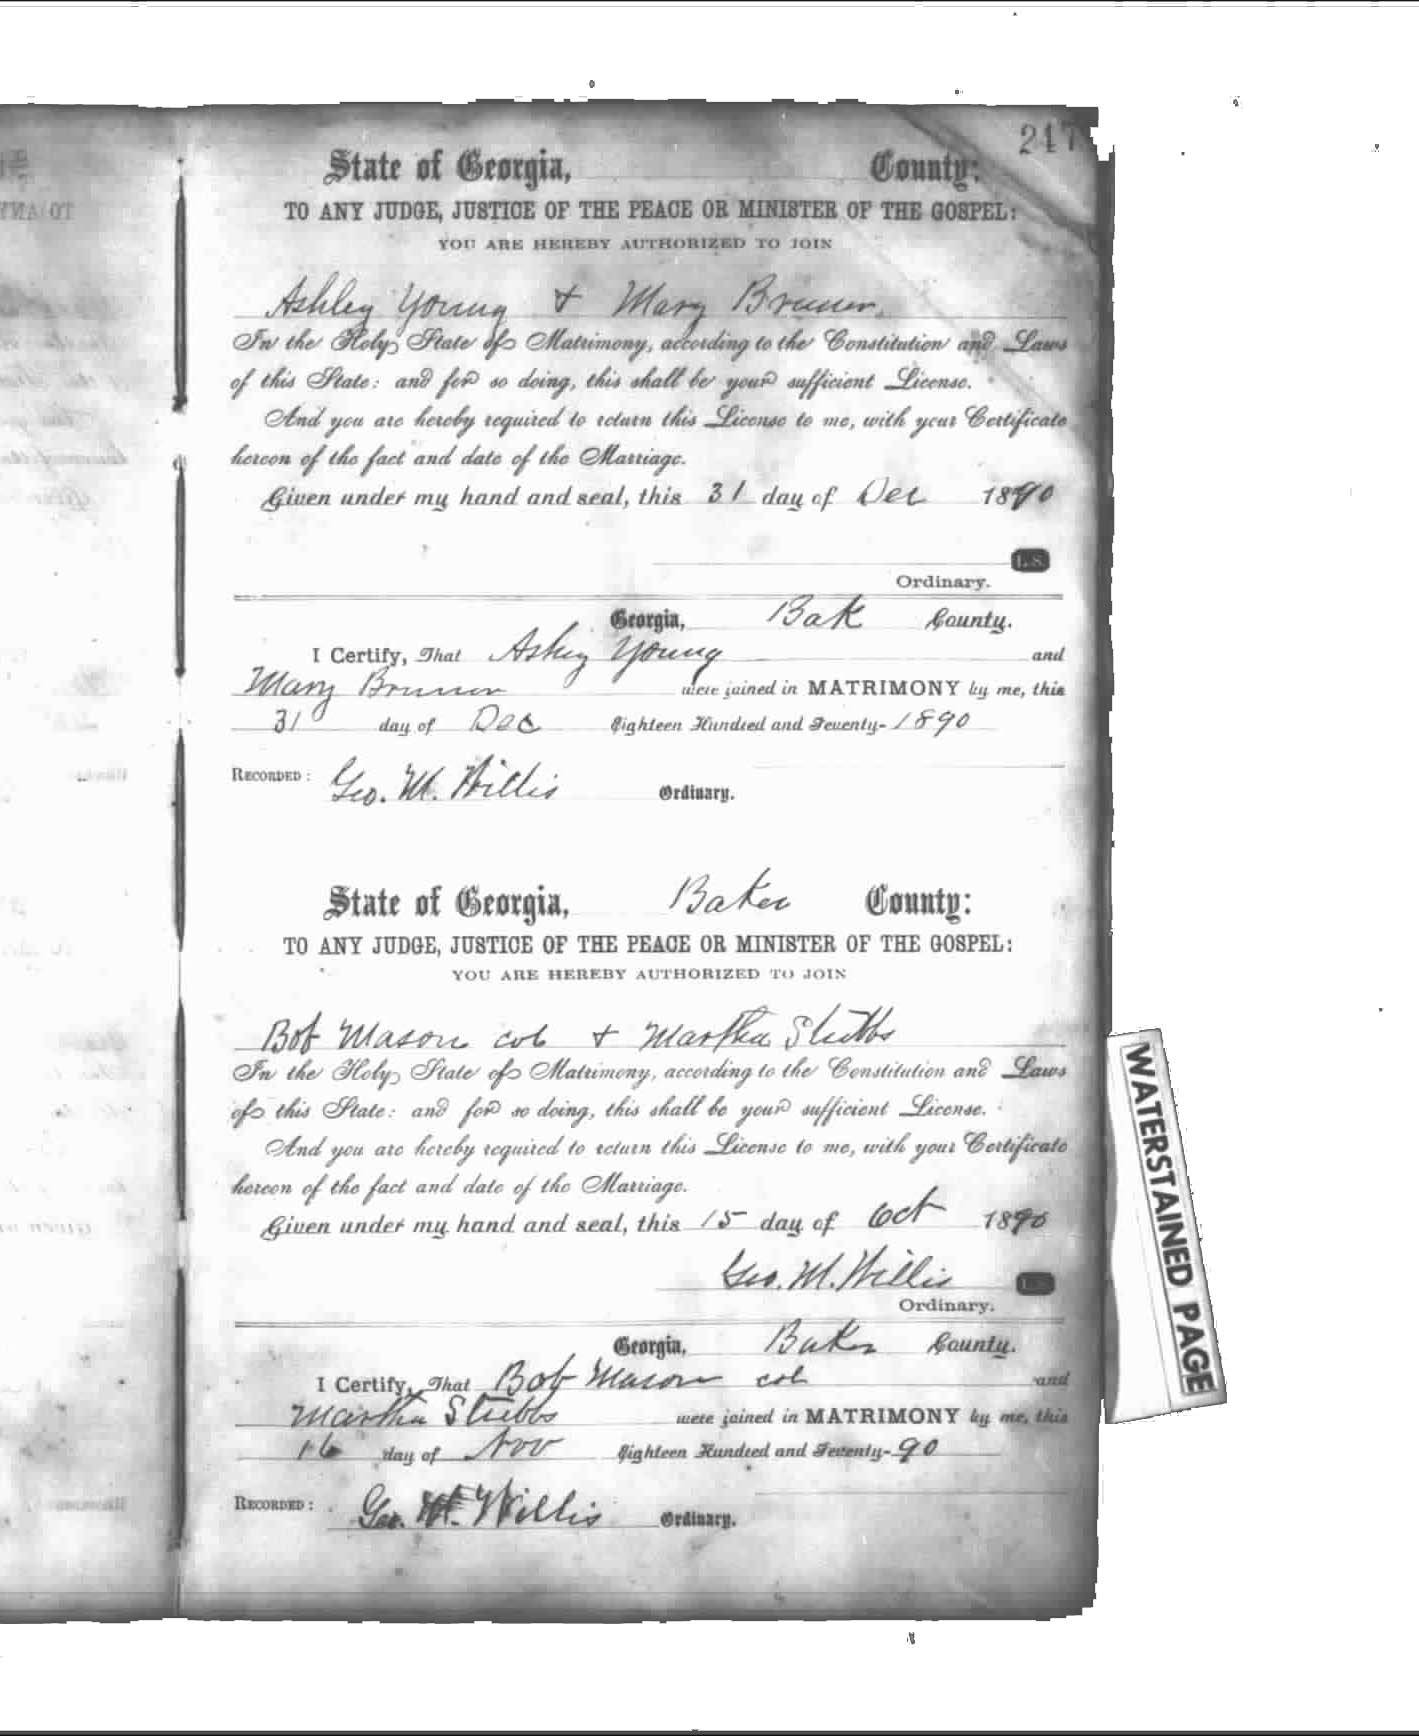 217
State of Georgia, County:
TO ANY JUDGE, JUSTICE OF THE PEACE OR MINISTER OF THE GOSPEL:
YOU ARE HEREBY AUTHORIZED TO JOIN
Ashley Young & Mary Bruner,
In the Holy State of Matrimony, according to the Constitution and Laws
of this State: and for so doing, this shall be your sufficient License.
And you are hereby required to return this License to me, with your Certificate
hereon of the fact and date of the Marriage.
Given under my hand and seal, this 31 day of Dec 1890
L. S.
Ordinary.
Georgia, Bak County.
I Certify, That Ashley Young and
Mary Bruner were joined in MATRIMONY by me, this
31 day of Dec Eighteen Hundred and Seventy- 1890
RECORDED: Geo. M. Willis Ordinary.
State of Georgia, Baker County:
TO ANY JUDGE, JUSTICE OF THE PEACE OR MINISTER OF THE GOSPEL:
YOU ARE HEREBY AUTHORIZED TO JOIN
Bob Mason col & Martha Stubbs
In the Holy State of Matrimony, according to the Constitution and Laws
of this State: and for so doing, this shall be your sufficient License.
And you are hereby required to return this License to me, with your Certificate
hereon of the fact and date of the Marriage.
Given under my hand and seal, this 15 day of Oct 1890
Geo. M. Willis
Ordinary.
Georgia, Baker County.
I Certify, That Bob Mason col and
Martha Stubbs were joined in MATRIMONY by me, this
16 day of Nov Eighteen Hundred and Seventy- 90
RECORDED: Geo. M. Willis Ordinary.
WATERSTAINED PAGE